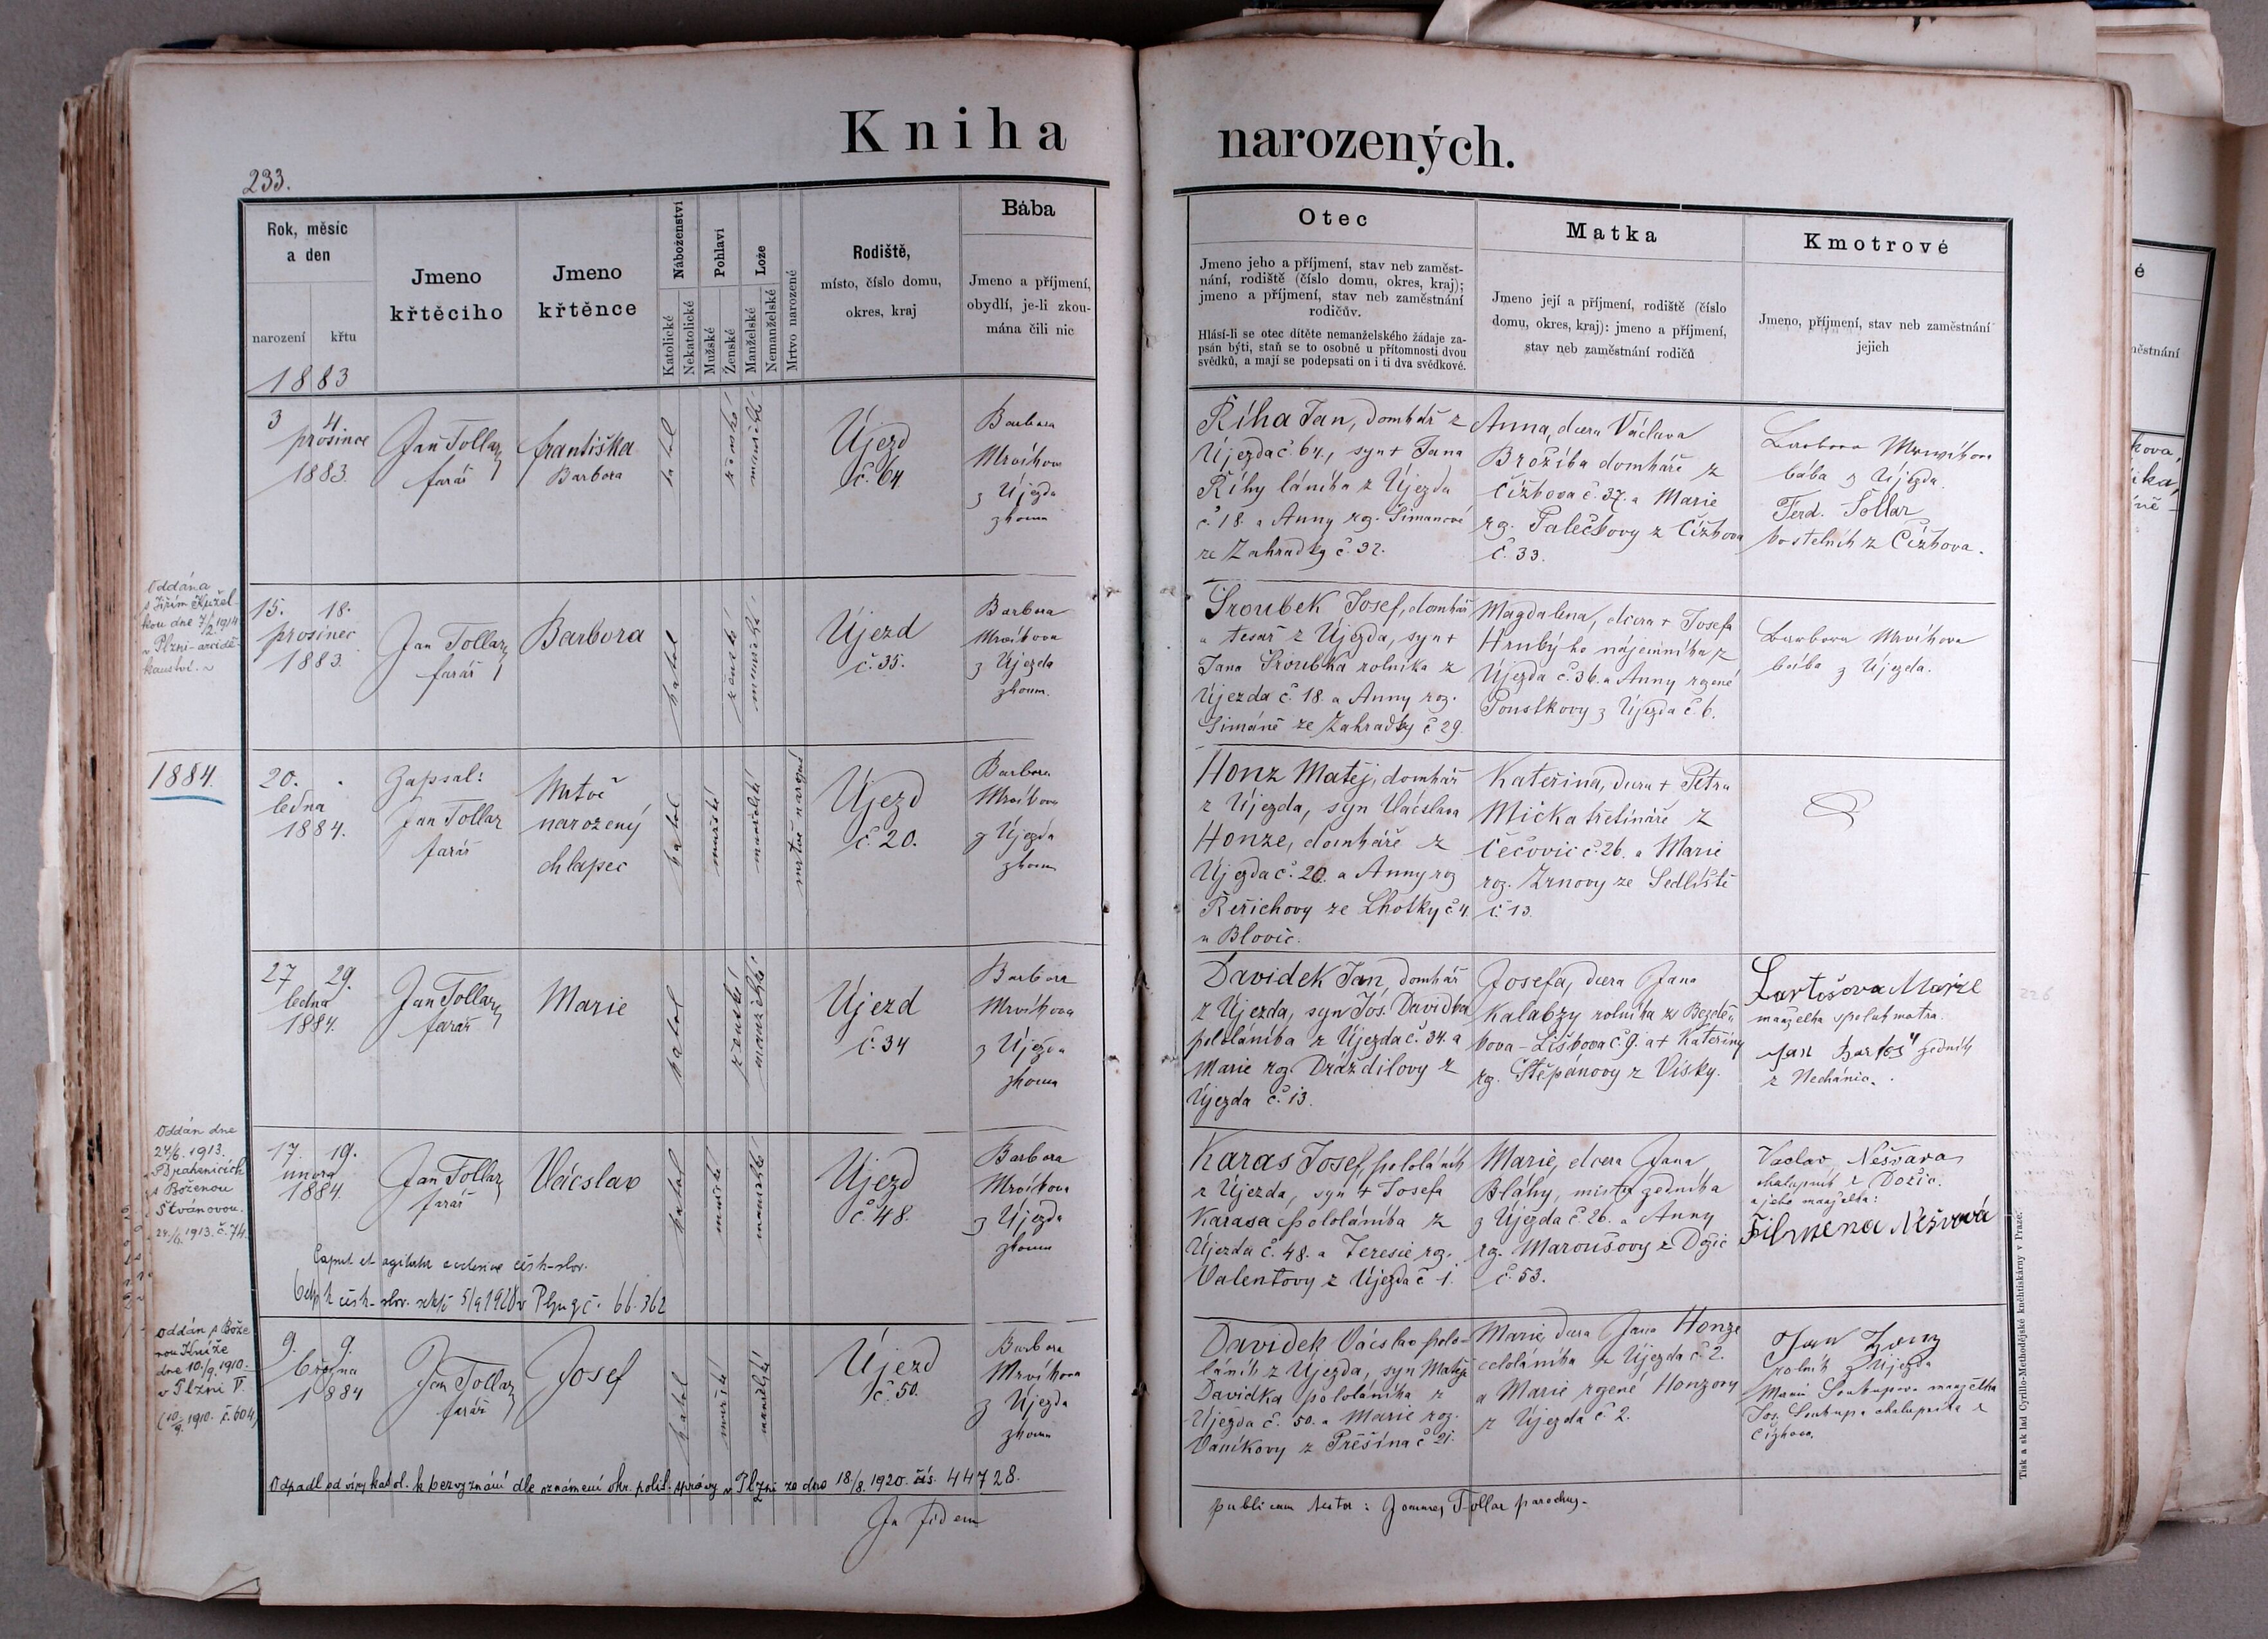 Kniha narozených.
233.
Rok, měsíc
a den
narození křtu
1883
Jmeno
křtěcího
Jmeno
křtěnce
Náboženství
Katolické
Nekatolické
Pohlaví
Mužské
Ženské
Lože
Manželské
Nemanželské
Mrtvo narozené
Rodiště,
místo, číslo domu,
okres, kraj
Bába
Jmeno a příjmení,
obydlí, je-li zkou-
mána čili nic
Otec
Jmeno jeho a příjmení, stav neb zaměst-
nání, rodiště (číslo domu, okres, kraj);
jmeno a příjmení, stav neb zaměstnání
rodičův.
Hlásí-li se otec dítěte nemanželského žádaje za-
psán býti, staň se to osobné u přítomnosti dvou
svědků, a mají se podepsati on i ti dva svědkové.
Matka
Jmeno její a příjmení, rodiště (číslo
domu, okres, kraj): jmeno a příjmení,
stav neb zaměstnání rodičů
Kmotrové
Jmeno, příjmení, stav neb zaměstnání
jejich
3 4
prosince
1883.
Jan Tollar
farář
Františka
Barbora
katol
ženské
manželské
Újezd
č. 64.
Barbora
Mrvíkova
z Újezda
zkoum
Říha Jan, domkář z
Újezda č. 64., syn + Jana
Říhy láníka z Újezda
č. 18. a Anny rz. Šimanové
ze Zahrádky č. 32.
Anna, dcera Václava
Brožíka domkáře z
Čížkova č. 37. a Marie
rz. Palečkovy z Čížkova
č. 33.
Barbora Mrvíkova
bába z Újezda.
Ferd. Tollar
kostelník z Čížkova.
Oddána
s Jiřím Kužel
kou dne 7/2. 1914
v Plzni-arcidě-
kanství.
15. 18.
prosince
1883.
Jan Tollar
farář
Barbora
katol
ženské
manželské
Újezd
č. 35.
Barbora
Mrvíkova
z Újezda
zkoum.
Šroubek Josef, domkář
a tesař z Újezda, syn +
Jana Šroubka rolníka z
Újezda č. 18. a Anny roz.
Šimáně ze Zahrádky č 29.
Magdalena, dcera + Josefa
Hrubýho nájemníka z
Újezda č. 36. a Anny rzené
Poustkovy z Újezda č. 6.
Barbora Mrvíkova
bába z Újezda.
1884.
20.
ledna
1884.
Zapsal:
Jan Tollar
farář
Mrtvě
narozený
chlapec
katol
mužské
manželské
mrtvě narozené
Újezd
č. 20.
Barbora
Mrvíkova
z Újezda
zkoum
Honz Matěj, domkář
z Újezda, syn Václava
Honze, domkáře z
Újezda č. 20. a Anny roz
Řeřichovy ze Lhotky č 4.
u Blovic.
Kateřina, dcera + Petra
Mička třetináře z
Čečovic č. 26. a Marie
roz. Zrnovy ze Sedliště
č. 13.
27 29.
ledna
1884.
Jan Tollar
farář
Marie
katol
ženské
manželské
Újezd
č. 34
Barbora
Mrvíkova
z Újezda
zkoum
Davídek Jan, domkář
z Újezda, syn Jos. Davídka
pololáníka z Újezda č. 34. a
Marie rz. Dráždilovy z
Újezda č. 13.
Josefa, dcera Jana
Kalabzy rolníka z Bezdě-
kova-Liškova č. 9. a + Kateřiny
rz. Štěpánovy z Vísky.
Bartošova Marie
manželka spolukmotra.
Jan Bartoš zedník
z Nechánic.
Oddán dne
24/6. 1913.
v Drahenicích
s Boženou
Štvánovou.
24/6. 1913. č. 74.
17. 19.
února
1884.
Jan Tollar
farář
Václav
katol
mužské
manželské
Újezd
č. 48.
Barbora
Mrvíkova
z Újezda
zkoum
Karas Josef, pololáník
z Újezda, syn + Josefa
Karasa pololáníka z
Újezda č. 48. a Teresie rz.
Valentovy z Újezda č 1.
Marie, dcera Jana
Bláhy, mistr zedníka
z Újezda č. 26. a Anny
rz. Maroušovy z Dožic
č. 53.
Vaclav Nešvara
chalupník z Dožic.
a jeho manželka:
Filmena Nešvová
čísh-slov.
k čísh-slov. sektě 5/9 1928 v Plzni č. 66.362
Oddán s Bože
nou Kníže
dne 10./9. 1910.
v Plzni V.
(10/9. 1910. č. 604)
9. 9.
března
1884
Jan Tollar
farář
Josef
katol
mužské
manželské
Újezd
č. 50.
Barbora
Mrvíkova
z Újezda
zkoum
Davídek Václav polo-
láník z Újezda, syn Matěje
Davídka pololáníka z
Újezda č. 50. a Marie roz.
Vaníkovy z Přešína č 21.
Marie, dcera Jana Honze
celoláníka z Újezda č. 2.
a Marie rzené Honzovy
z Újezda č. 2.
Jan Honz
rolník z Újezda
Marie Soukupova manželka
Jos. Soukupa chalupníka z
Čížkova.
Odpadl od víry katol. k bezvyznání dle oznámení okr. polit. správy v Plzni ze dne 18./8. 1920. čís. 44728.
In fidem
publicam testor: Joannes Tollar parochus.
Tisk a sklad Cyrillo-Methodějské knihtiskárny v Praze.